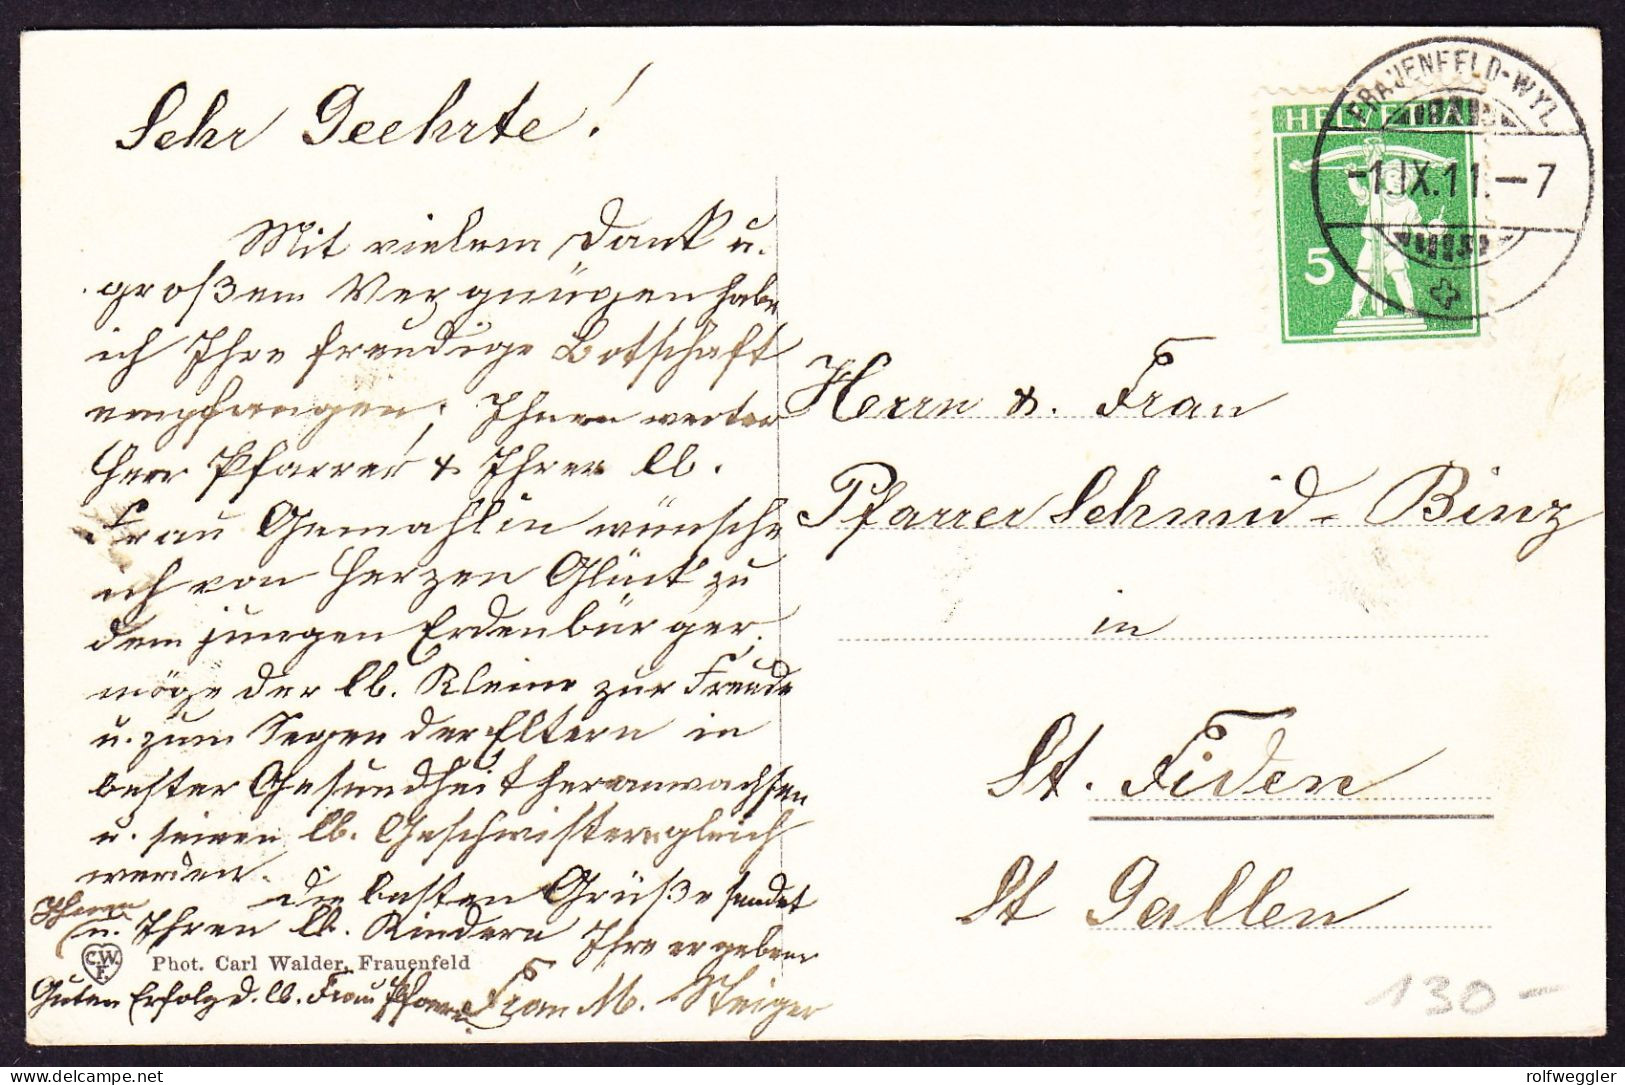 Sehr Geehrte!
Mit vielem Dank u.
großem Vergnügen habe
ich Ihre freudige Botschaft
empfangen. Ihnen werter
Herr Pfarrer & Ihrer lb.
Frau Gemahlin wünsche
ich von Herzen Glück zu
dem jungen Erdenbürger,
möge der lb. Kleine zur Freude
u. zum Segen der Eltern in
bester Gesundheit heranwachsen
u. seinen lb. Geschwistern gleich
werden.
die besten Grüße sendet
Ihnen
u. Ihren lb. Kindern Ihre ergebene
Frau M. Steiger
Guten Erfolg d. lb. Frau Pfarrer.
C.W.
F.
Phot. Carl Walder, Frauenfeld
FRAUENFELD-WYL
-1.IX.11.-7
HELVETIA
5
Herrn & Frau
Pfarrer Schmid-Binz
in
St. Fiden
St Gallen
130-
delcampe.net
rolfweggler